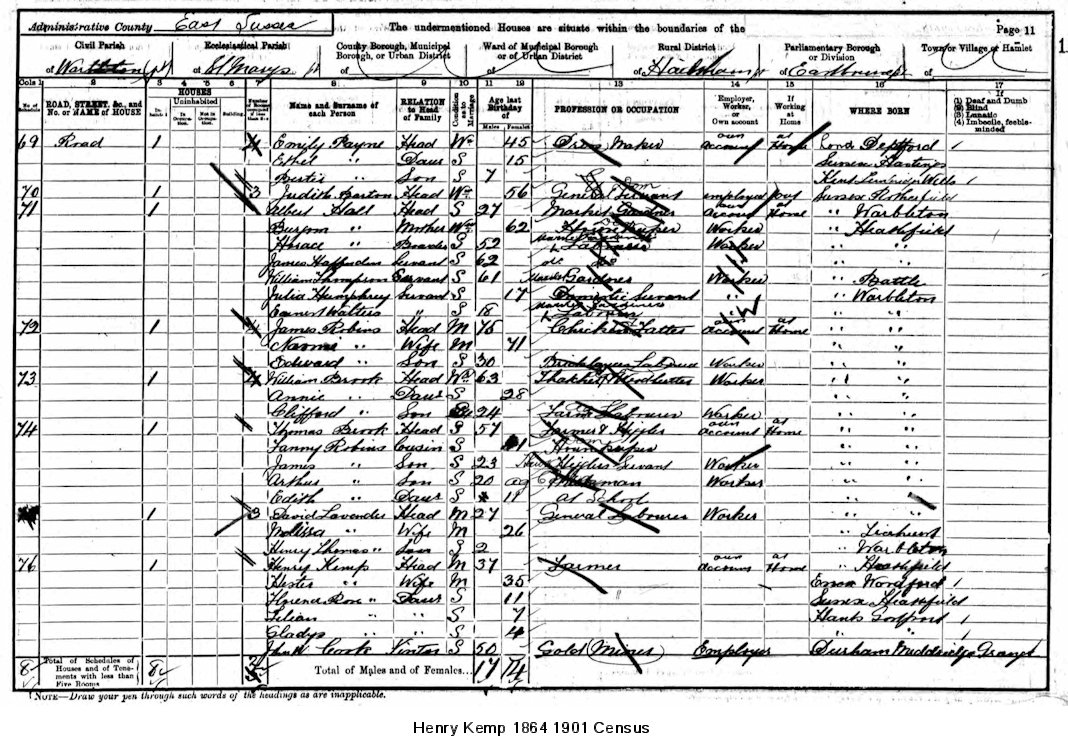 Administrative County East Sussex
The undermentioned Houses are situate within the boundaries of the
Page 11
Civil Parish
of Warbleton (pt)
Ecclesiastical Parish
of St Marys pt
County Borough, Municipal Borough, or Urban District
of
Ward of Municipal Borough or of Urban District
of
Rural District
of Hailsham pt
Parliamentary Borough or Division
of Eastbourne pt
Town or Village or Hamlet
of
Cols 1 2 3 4 5 6 7 8 9 10 11 12 13 14 15 16 17
No. of Schedule
ROAD, STREET, &c., and No. or NAME of HOUSE
HOUSES
Inhabited
Uninhabited
In Occupation.
Not in Occupation.
Building
Name and Surname of each Person
RELATION to Head of Family
Condition as to Marriage
Age last Birthday of
Males Females
PROFESSION OR OCCUPATION
Employer, Worker, or Own account
If Working at Home
WHERE BORN
If (1) Deaf and Dumb (2) Blind (3) Lunatic (4) Imbecile, feeble-minded
69 Road 1 4 Emily Payne Head Wr 45 Dress Maker own account at Home Lond Deptford
Ethel " Daur S 15 Sussex Hastings
Bertie " Son S 7 Kent
70 3 Judith Barton Head Wr 56 General Servant employed Sussex Rotherfield
71 1 Albert Hall Head S 27 Market Gardner own account at Home " Warbleton
" Mother 62 Worker " Heathfield
Horace " Boarder S 52 Labourer Worker " "
James Haffenden Servant S 62 do do " "
William Thompson Servant S 61 Market Gardner Worker " Battle
Julia Humphrey Servant S 17 Domestic Servant " " Warbleton
Ernest Walters " S 18 Market Gardeners Labourer " "
72 1 James Robins Head M 76 Chicken Fatter own account at Home " "
Naomi " Wife M 71 " "
Edward " Son S 30 Bricklayers Labourer Worker " "
73 1 4 William Brook Head Wr 63 Thatcher Woodcutter Worker " "
Annie " Daur S 28 " "
Clifford " Son S 24 Farm Labourer Worker " "
74 1 Thomas Brook Head S 57 Farmer & Higgler own account at Home " "
Fanny Robins Cousin S Housekeeper " "
James " Son S 23 Higglers Servant Worker " "
Arthur " Son S 20 Worker " "
Edith " Daur S 11 At School " "
1 3 David Lavender Head M 27 General Labourer Worker " "
Melissa " Wife M 26 " Ticehurst
Henry Thomas " Son S 2 " Warbleton
76 1 Henry Kemp Head M 37 Farmer own account at Home " Heathfield
Hester " Wife M 35 Essex Woodford
Florence Rose " Daur S 11 Sussex Heathfield
Lilian " " S 7 Hants
Gladys " " S 4 " "
John Cook Visitor S 50 Gold Miner Employer Durham
8 Total of Schedules of Houses and of Tenements with less than Five Rooms 8
Total of Males and of Females... 17 14
NOTE—Draw your pen through such words of the headings as are inapplicable.
Henry Kemp 1864 1901 Census